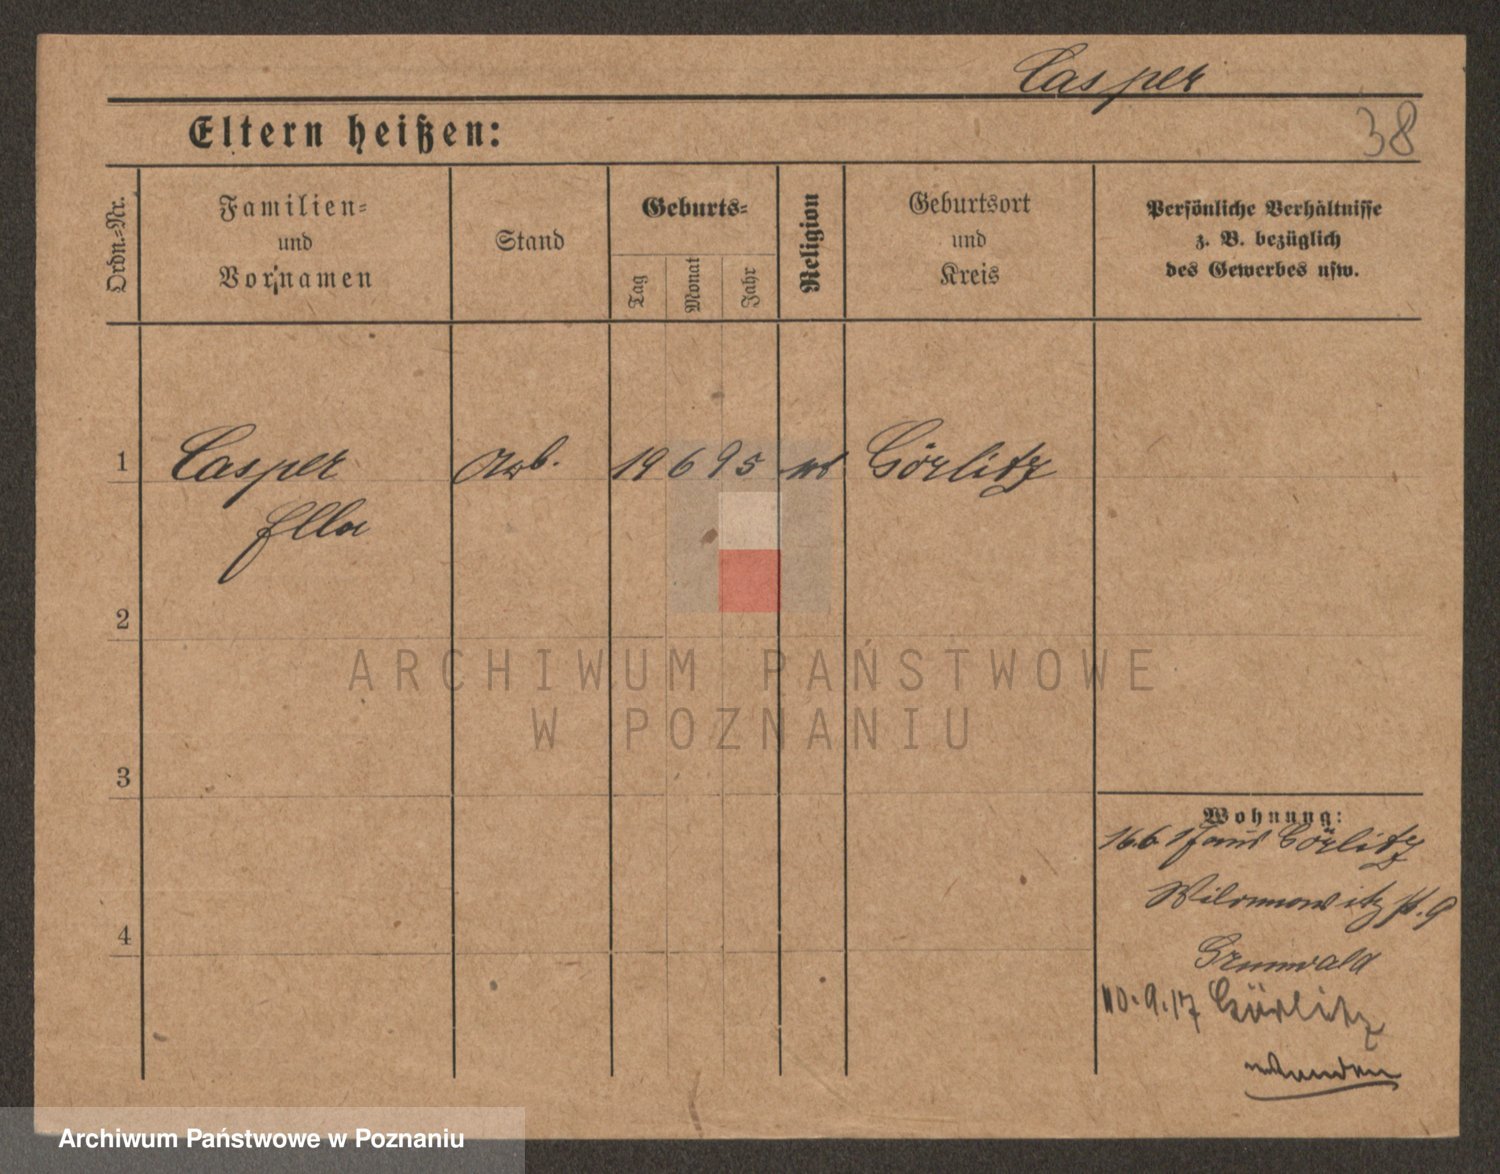 Casper
38
Eltern heißen:
Ordn.-Nr.
Familien-
und
Vornamen
Stand
Geburts-
Tag
Monat
Jahr
Religion
Geburtsort
und
Kreis
Persönliche Verhältnisse
z. B. bezüglich
des Gewerbes usw.
1 Casper Arb. 19 6 95 Görlitz
Ella
2
ARCHIWUM PAŃSTWOWE
W POZNANIU
3
Wohnung:
16.6 Görlitz
9
4
Grunwald
10.9.17 Görlitz
Archiwum Państwowe w Poznaniu